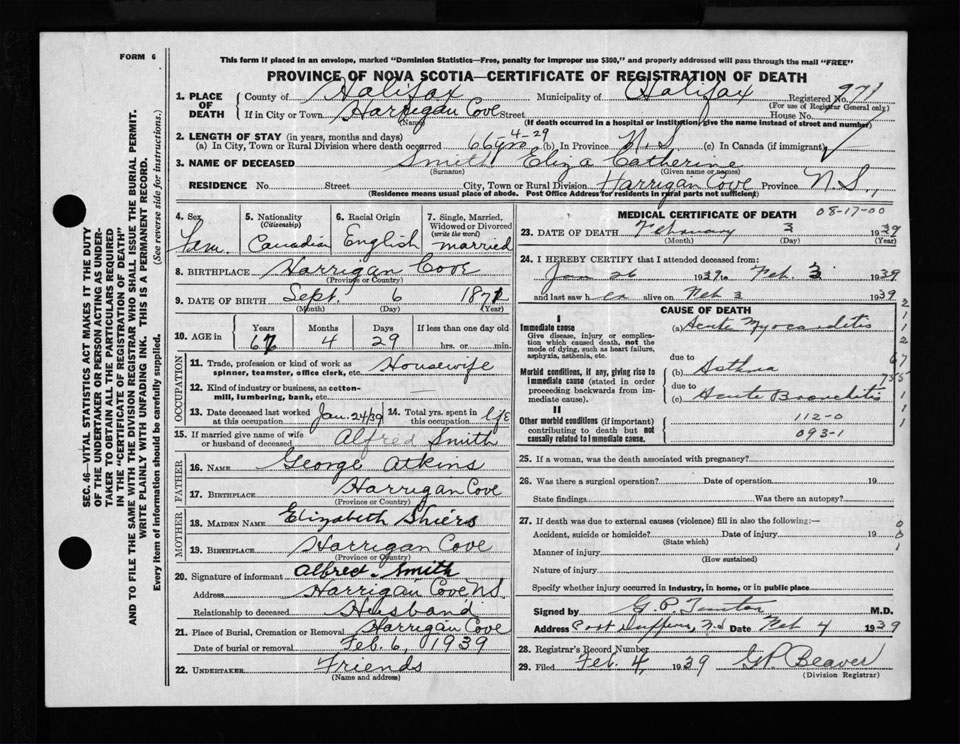 FORM 6
This form if placed in an envelope, marked "Dominion Statistics—Free, penalty for improper use $300," and properly addressed will pass through the mail "FREE"
PROVINCE OF NOVA SCOTIA—CERTIFICATE OF REGISTRATION OF DEATH
1. PLACE OF DEATH County of Halifax Municipality of Halifax Registered No. 971
(For use of Registrar General only.)
If in City or Town Harrigan Cove Street House No.
(Name) (If death occurred in a hospital or institution, give the name instead of street and number)
2. LENGTH OF STAY (in years, months and days)
(a) In City, Town or Rural Division where death occurred 66 yrs 4-29 (b) In Province N.S (c) In Canada (if immigrant)
3. NAME OF DECEASED Smith Eliza Catherine
(Surname) (Given name or names)
RESIDENCE No. Street City, Town or Rural Division Harrigan Cove Province N.S.,
(Residence means usual place of abode. Post Office Address for Residents in rural parts not sufficient)
4. Sex Fem. 5. Nationality (Citizenship) Canadian 6. Racial Origin English 7. Single, Married, Widowed or Divorced (write the word) married
8. BIRTHPLACE Harrigan Cove
(Province or Country)
9. DATE OF BIRTH Sept. 6 1872
(Month) (Day) (Year)
10. AGE in Years 66 Months 4 Days 29 If less than one day old hrs. or min.
OCCUPATION
11. Trade, profession or kind of work as spinner, teamster, office clerk, etc. Housewife
12. Kind of industry or business, as cotton-mill, lumbering, bank, etc.
13. Date deceased last worked at this occupation Jan. 24/39 14. Total yrs. spent in this occupation life
15. If married give name of wife or husband of deceased Alfred Smith
FATHER
16. NAME George Atkins
17. BIRTHPLACE Harrigan Cove
(Province or Country)
MOTHER
18. MAIDEN NAME Elizabeth Shiers
19. BIRTHPLACE Harrigan Cove
(Province or Country)
20. Signature of informant Alfred Smith
Address Harrigan Cove N.S.
Relationship to deceased Husband
21. Place of Burial, Cremation or Removal Harrigan Cove
Date of burial or removal Feb. 6, 1939
22. UNDERTAKER Friends
(Name and address)
MEDICAL CERTIFICATE OF DEATH 08-17-00
23. DATE OF DEATH February 3 1939
(Month) (Day) (Year)
24. I HEREBY CERTIFY that I attended deceased from:
Jan 26 1939 to Feb. 3 1939
and last saw her alive on Feb 3 1939
CAUSE OF DEATH
I
Immediate cause (a) Acute Myocarditis
Give disease, injury or complication which caused death, not the mode of dying, such as heart failure, asphyxia, asthenia, etc.
due to
(b) Asthma
Morbid conditions, if any, giving rise to immediate cause (stated in order proceeding backwards from immediate cause).
due to
(c) Acute Bronchitis
II
Other morbid conditions (if important) contributing to death but not causally related to immediate cause.
112-0
093-1
25. If a woman, was the death associated with pregnancy?
26. Was there a surgical operation? Date of operation 19
State findings Was there an autopsy?
27. If death was due to external causes (violence) fill in also the following:—
Accident, suicide or homicide? Date of injury 19
(State which)
Manner of injury
(How sustained)
Nature of injury
Specify whether injury occurred in industry, in home, or in public place
Signed by G. P. M.D.
Address Port Dufferin, N.S Date Feb 4 1939
28. Registrar's Record Number
29. Filed Feb. 4, 1939 GP Beaver
(Division Registrar)
SEC. 46—VITAL STATISTICS ACT MAKES IT THE DUTY
OF THE UNDERTAKER OR PERSON ACTING AS UNDER-
TAKER TO OBTAIN ALL THE PARTICULARS REQUIRED
IN THE "CERTIFICATE OF REGISTRATION OF DEATH"
AND TO FILE THE SAME WITH THE DIVISION REGISTRAR WHO SHALL ISSUE THE BURIAL PERMIT.
WRITE PLAINLY WITH UNFADING INK. THIS IS A PERMANENT RECORD.
Every item of information should be carefully supplied. (See reverse side for instructions.)